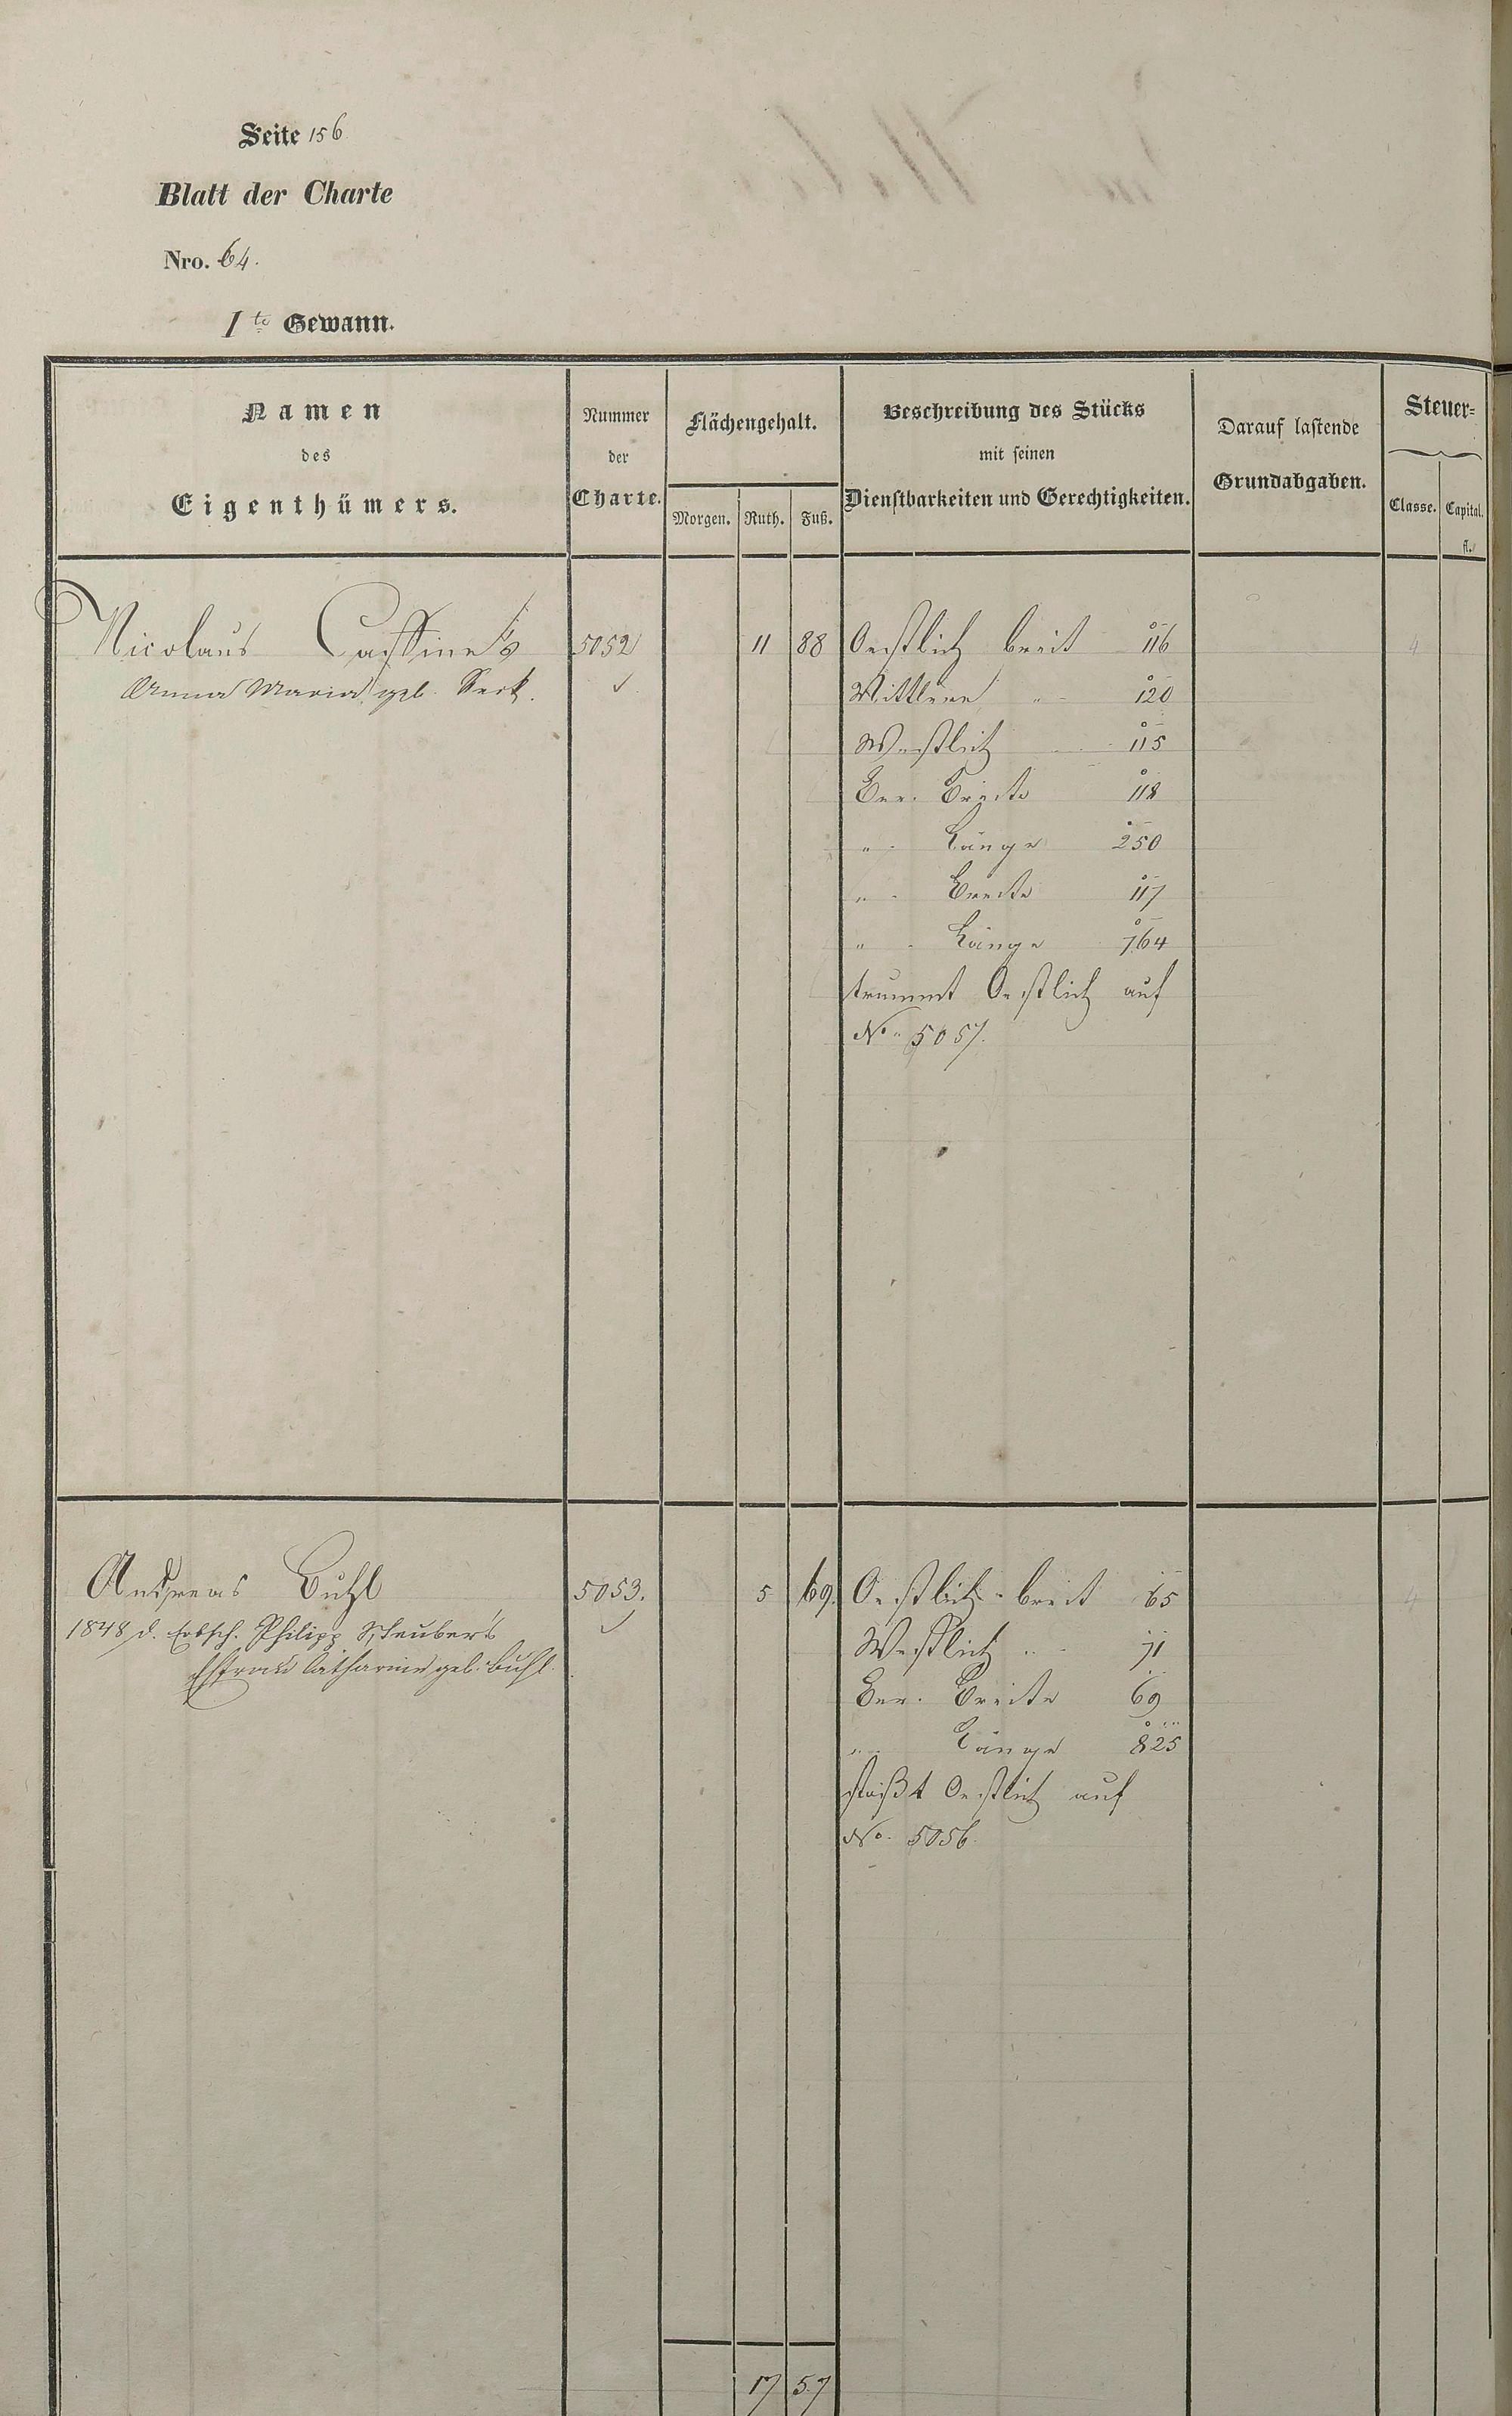 Seite 156
Blatt der Charte
Nro. 64.
1te Gewann.
Namen
des
Eigenthümers.
Nummer
der
Charte.
Flächengehalt.
Morgen. Ruth. Fuß.
Beschreibung des Stücks
mit seinen
Dienstbarkeiten und Gerechtigkeiten.
Darauf lastende
Grundabgaben.
Steuer-
Classe. Capital.
fl.
Nicolaus 5052 11 88 Oestlich breit 116 4
Anna Maria geb. Seck.
Mittlere " 120
Westlich 115
Ber. Breite 118
" Länge 250
" Breite 117
" Länge 764
trummt Oestlich auf
No. 5057.
Andreas Buhl 5053. 5 69. Oestlich breit 65 4
1848 d. Erbsch. Philipp Staubert's
Ehfrau Catharine geb. Buhl.
Westlich " 71
Ber. Breite 69
" Länge 825
stößt Oestlich auf
No. 5056
17 57